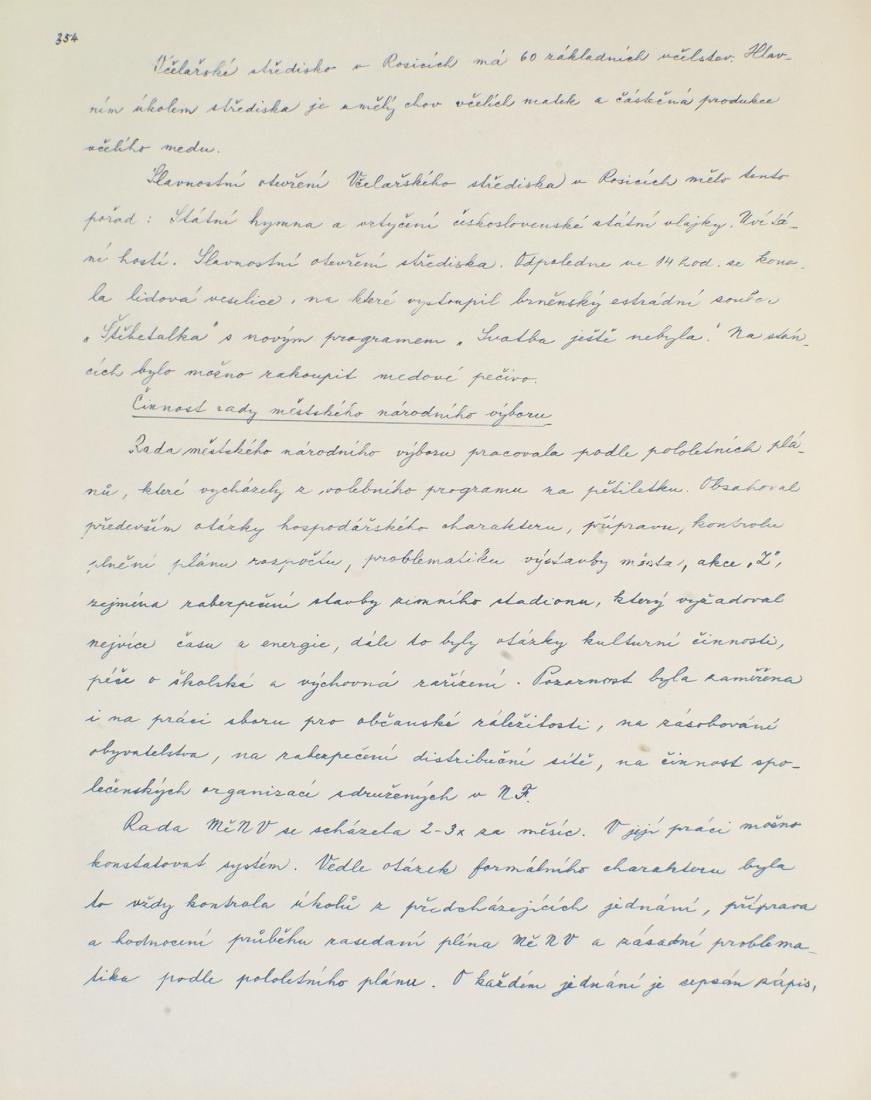 354
Včelařské středisko v Rosicích má 60 základních včelstev. Hlav-
ním úkolem střediska je umělý chov včelích matek a částečná produkce
včelího medu.
Slavnostní otevření Včelařského střediska v Rosicích mělo tento
pořad: Státní hymna a vztyčení československé státní vlajky. Uvítá-
ní hostí. Slavnostní otevření střediska. Odpoledne ve 14 hod. se kona-
la lidová veselice, na které vystoupil brněnský estrádní soubor
„Štěbetalka" s novým programem „Svatba ještě nebyla." Na stán-
cích bylo možno zakoupit medové pečivo.
Činnost rady městského národního výboru
Rada městského národního výboru pracovala podle pololetních plá-
nů, které vycházely z volebního programu na pětiletku. Obsahoval
především otázky hospodářského charakteru, přípravu, kontrolu
plnění plánu rozpočtu, problematiku výstavby města, akce „Z",
zejména zabezpečení stavby zimního stadionu, který vyžadoval
nejvíce času a energie, dále to byly otázky kulturní činnosti,
péče o školská a výchovná zařízení. Pozornost byla zaměřena
i na práci sboru pro občanské záležitosti, na zásobování
obyvatelstva, na zabezpečení distribuční sítě, na činnost spo-
lečenských organizací sdružených v NF.
Rada MěNV se scházela 2-3x za měsíc. V její práci možno
konstatovat systém. Vedle otázek formálního charakteru byla
to vždy kontrola úkolů z předcházejících jednání, příprava
a hodnocení průběhu zasedání pléna MěNV a zásadní problema-
tika podle pololetního plánu. O každém jednání je sepsán zápis,